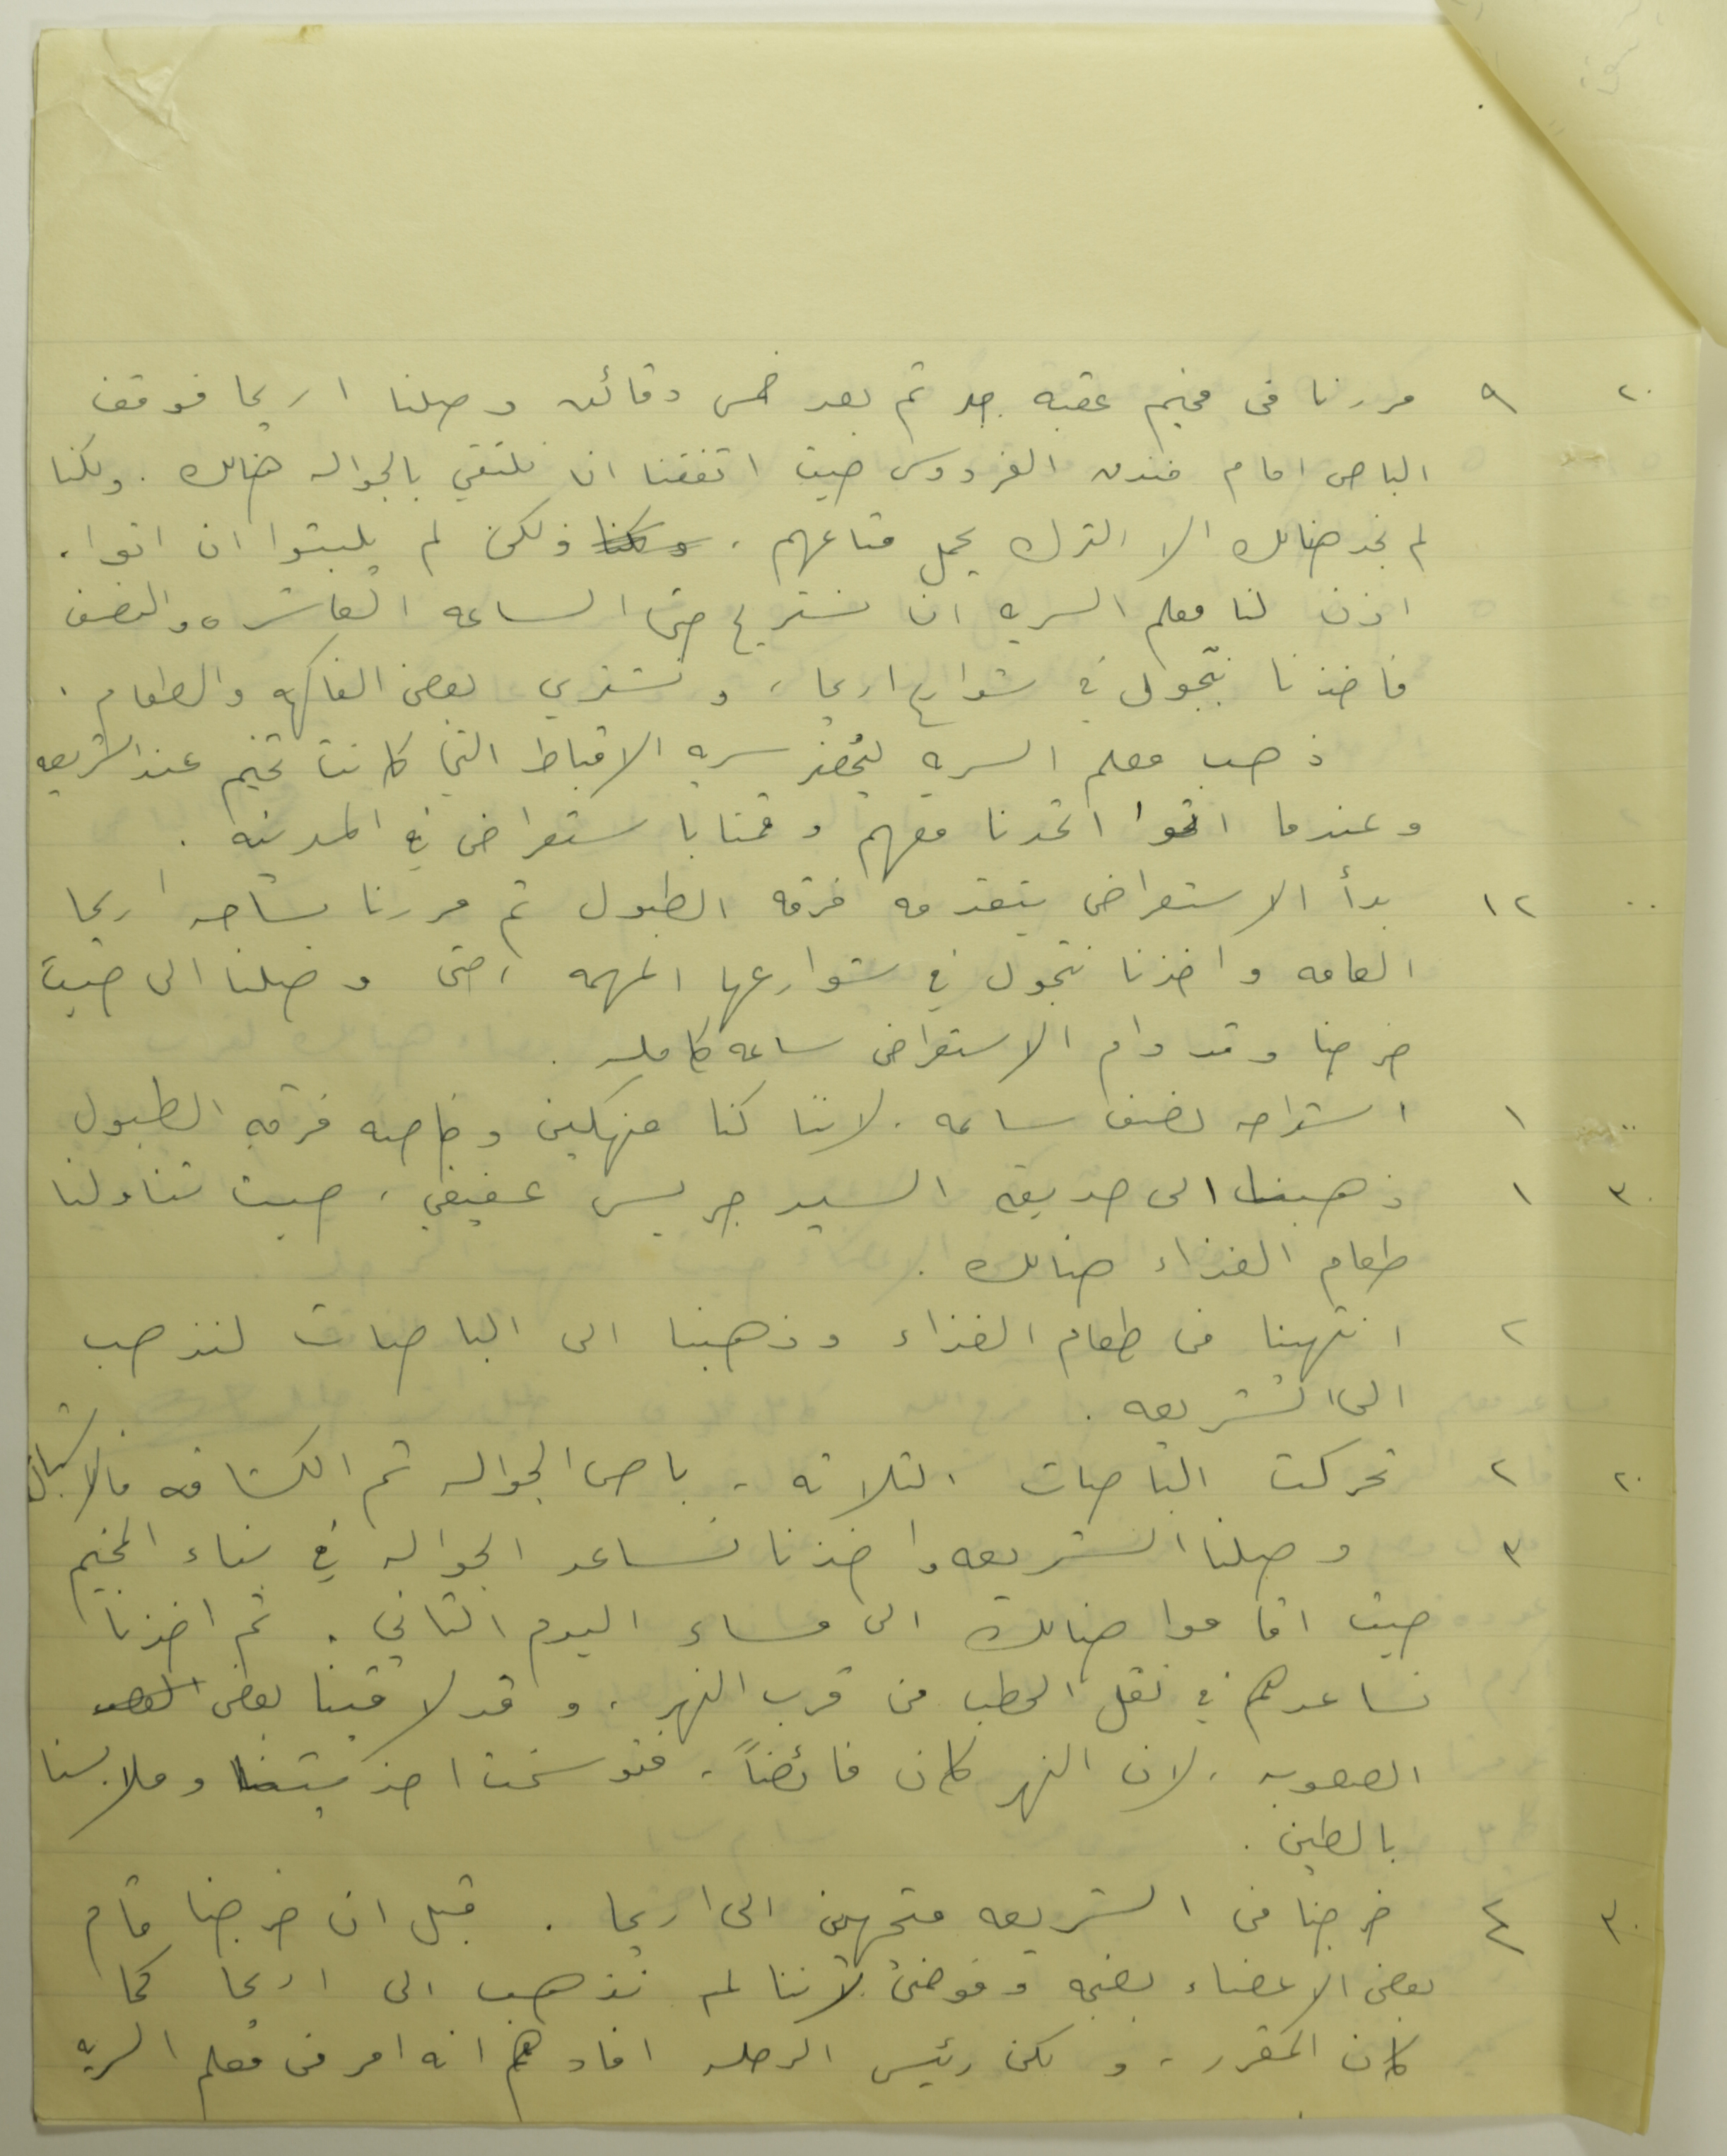 ٢٠ ٩ مررنا في مخيم عقبه جبر ثم بعد خمس دقائق وصلنا اريحا فوقف
الباص امام فندق الفردوس حيث اتفقنا ان نلتقي بالجواله هنالك . ولكنا
لم نجد هنالك الا الترك يحمل متاعهم ، ولكنا ولكن لم يلبثوا ان اتوا .
اذن لنا معلم السريه ان نستريح حتى الساعه العاشره والنصف
فاخذنا نتجول في شوارع اريحا ، ونشتري بعض الفاكهه والطعام .
ذهب معلم السريه ليحضر سريه الاقباط التي كانت تخيم عند الشريعه
وعندما اتوا اتحدنا معهم وقمنا باستعراض في المدينه .
.. ١٢ بدأ الاستعراض يتقدمه فرقه الطبول ثم مررنا بساحه اريحا
العامه واخذنا نتجول في شوارعها المهمه ، حتى وصلنا الى حيث
خرجنا وقد دام الاستعراض ساعه كامله .
.. ١ استراحه نصف ساعه . لاننا كنا منهكين وخاصه فرقه الطبول
٣٠ ١ ذهبنا الى حديقه السيد جريس عفيفي ، حيث تناولنا
طعام الغذاء هنالك .
٢ انتهينا من طعام الغذاء وذهبنا الى الباصات لنذهب
الى الشريعه .
٢٠ ٢ تحركت الباصات الثلاثه ، باص الجواله ثم الكشافه فالاشبال
٣ وصلنا الشريعه واخذنا نساعد الجواله في بناء المخيم
حيث اقاموا هنالك الى مساء اليوم الثاني . ثم اخذنا
نساعدهم في نقل الحطب من قرب النهر ، وقد لاقينا بعض
الصعوبه ، لان النهر كان فائضاً ، فتوسخت احذيتنا وملابسنا
بالطين .
٣٠ ٤ خرجنا من الشريعه متجهين الى اريحا . قبل ان خرجنا قام
بعض الاعضاء بضجه وفوضى لاننا لم نذهب الى اريحا كما
كان المقرر ، ولكن رئيس الرحله افادهم انه امر من معلم السريه